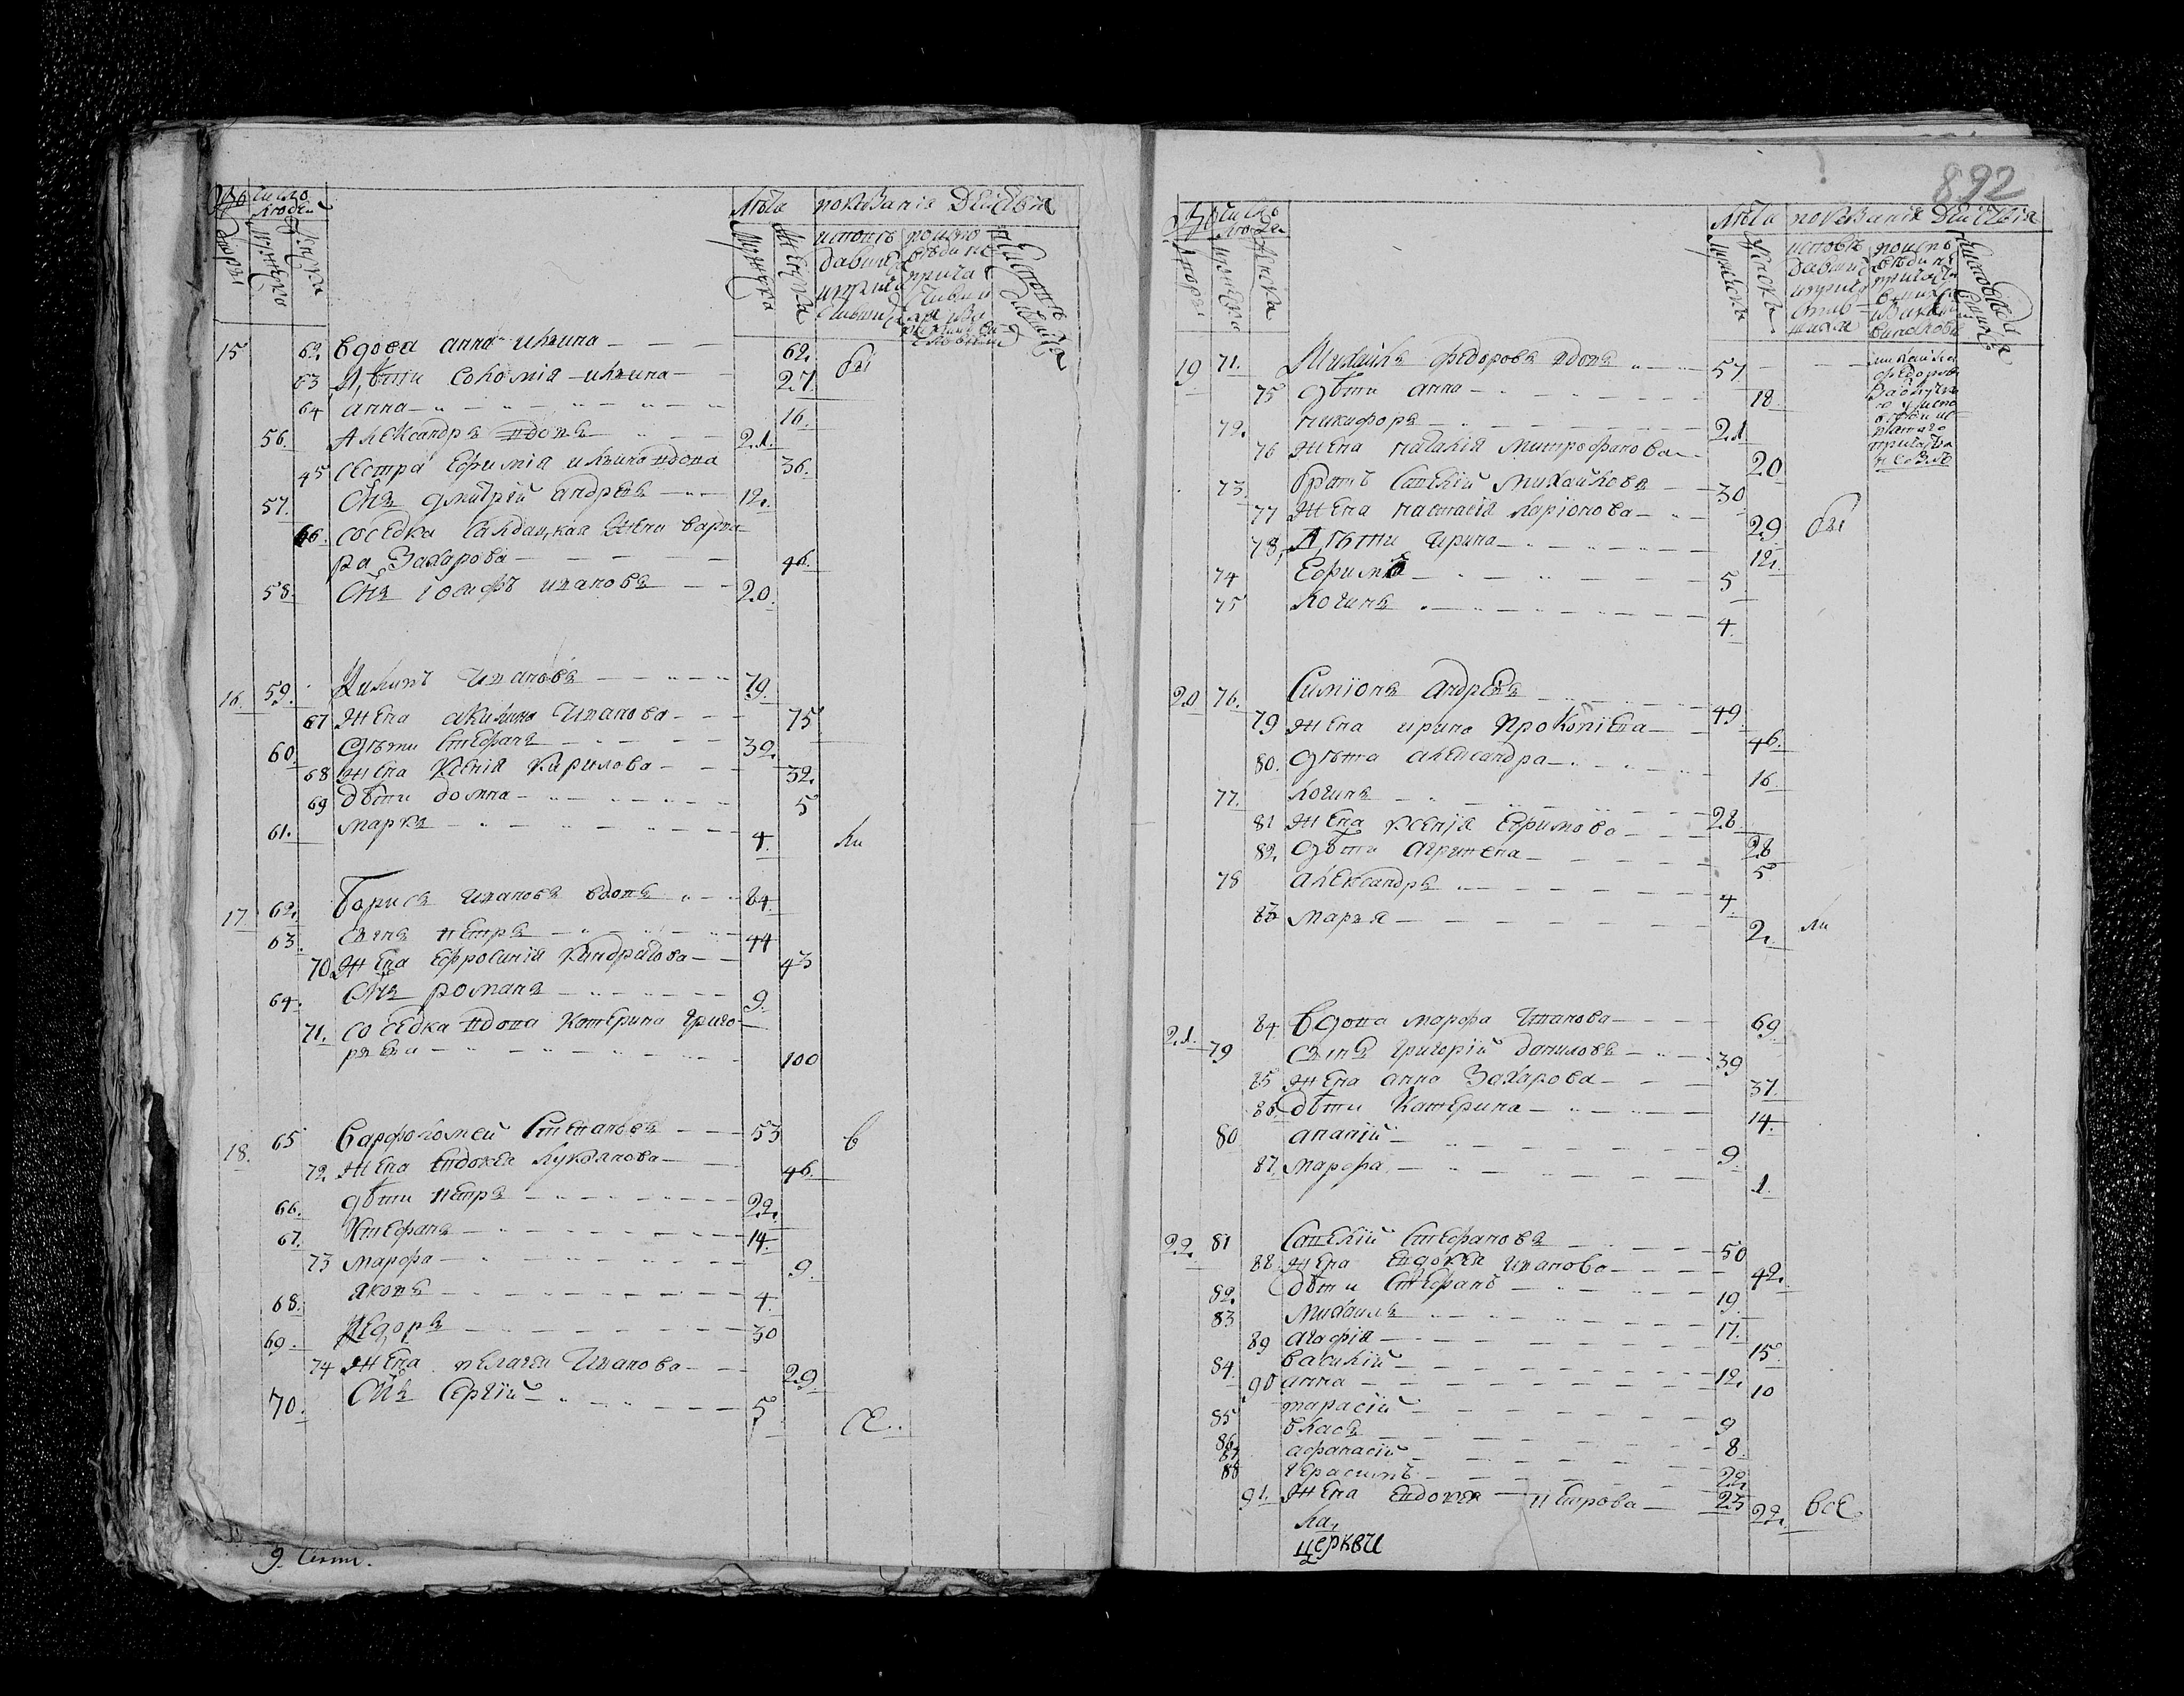 число людей
Лѣта
показанія дѣйствія
Мужеска
Женска
15 62. вдова анна ильина 62. бы
63 Дѣти Соломія ильина 27.
64 анна 16.
56. Александръ вдовъ 21.
45 сестра Ефимія ильина вдова 36.
57. Снъ дмитрій андреевъ 12.
66. соседка салдацкая жена варва
ра Захарова 46.
58. Снъ Іосифъ ивановъ 20.
16. 59. Филипъ Ивановъ 79.
67 жена акилина Иванова 75
60. Дѣти Стефанъ 32.
68 жена Ксенія Кирилова 32.
69 дѣти домна 5
61. маркъ 4. ли
17 62. Борисъ Ивановъ вдовъ 64.
63. сынъ петръ 44
70. жена Ефросинія Кандратова 43
64. Снъ романъ 9.
71. соседка вдова Катерина григо
рьева 100
18. 65 Варфоломей Степановъ 53 в
72. жена Евдокея лукьянова 46.
66. дѣти петръ 22.
67. Стефанъ 14.
73 марфа 9.
68. яковъ 4.
69. Федоръ 30
74 жена пелагея Иванова 29
70. Снъ Сергій 5 се..
9. Сент.
892
число людей
Лѣта показанія дѣйствія
19 71. Михайла федоровъ вдовъ 57
75 дѣти анна 18.
72. никифоръ 21
76 жена наталія Митрофанова 20
73. братъ Савелій Михайловъ 30
77 жена настасія ларіонова 29 бы
78, Дѣти ирина 12.
74 Ефимъ 5
75 логинъ 4.
михайла
федоровъ
20 76. Симіонъ андреевъ 49
79 жена ирина прокопіева 46.
80. дѣти александра 16
77. логинъ 28
81 жена ксенія Ефимова 28
82. дѣти агрипена 5
78 александръ 4.
83 марья 2. ли
21. 84. вдова марфа Иванова 69
79 сынъ григорій даниловъ 39
85 жена анна Захарова 37.
86. дѣти Катерина 14.
80 ананій 9.
87. марфа 1.
22. 81 Савелій Стефановъ 50
88 жена Евдокея иванова 42.
82. дѣти Стефанъ 19.
83 михаилъ 17.
89 агафія 15.
84. василій 12.
90 анна 10
85 тарасій 9
86 власъ 8.
87 афанасій 22
88 герасимъ 23
91. жена Евдокея петрова 22. все
ка,
церкви